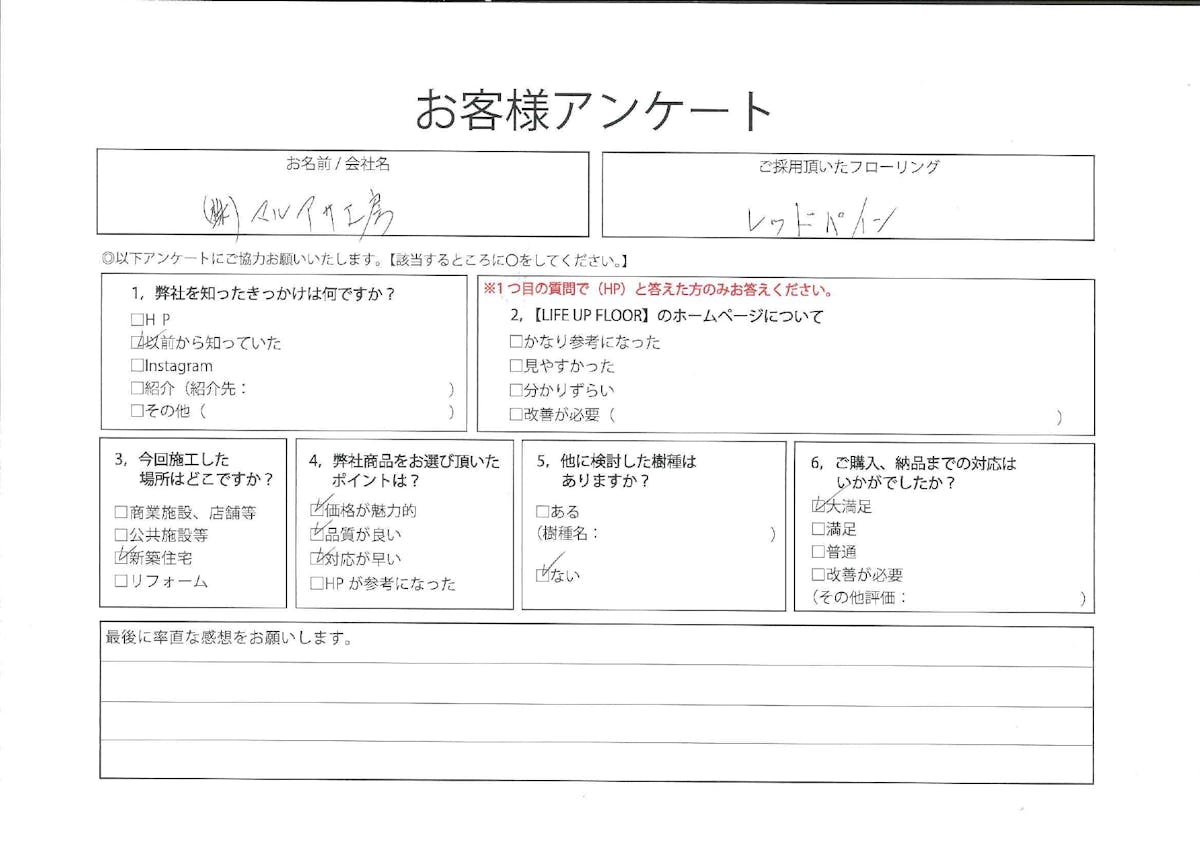 お客様アンケート
お名前 / 会社名
(株) マルアサ工房
ご採用頂いたフローリング
レッドパイン
◎以下アンケートにご協力お願いいたします。【該当するところに〇をしてください。】
1，弊社を知ったきっかけは何ですか？
□H P
☑以前から知っていた
□Instagram
□紹介（紹介先： ）
□その他（ ）
※1つ目の質問で（HP）と答えた方のみお答えください。
2，【LIFE UP FLOOR】のホームページについて
□かなり参考になった
□見やすかった
□分かりずらい
□改善が必要（ ）
3，今回施工した
場所はどこですか？
□商業施設、店舗等
□公共施設等
☑新築住宅
□リフォーム
4，弊社商品をお選び頂いた
ポイントは？
☑価格が魅力的
☑品質が良い
☑対応が早い
□HP が参考になった
5，他に検討した樹種は
ありますか？
□ある
（樹種名： ）
☑ない
6，ご購入、納品までの対応は
いかがでしたか？
☑大満足
□満足
□普通
□改善が必要
（その他評価： ）
最後に率直な感想をお願いします。